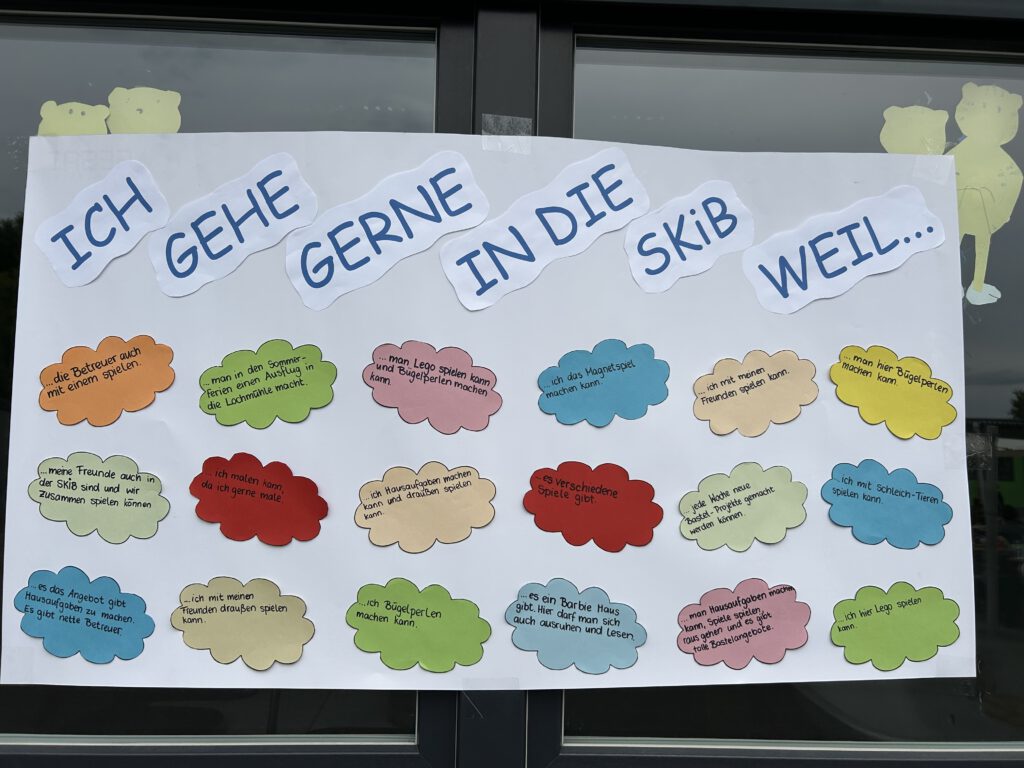 ICH GEHE GERNE IN DIE SKiB WEIL...
...die Betreuer auch
mit einem spielen.
...man in den Sommer-
Ferien einen Ausflug in
die Lochmühle macht.
...man Lego spielen kann
und Bügelperlen machen
kann.
...ich das Magnetspiel
machen kann.
...ich mit meinen
Freunden spielen kann.
...man hier Bügelperlen
machen kann.
...meine Freunde auch in
der SKiB sind und wir
zusammen spielen können
...ich malen kann,
da ich gerne male
...ich Hausaufgaben machen
kann und draußen spielen
kann.
...es verschiedene
Spiele gibt.
...jede Woche neue
Bastel-Projekte gemacht
werden können.
...ich mit Schleich-Tieren
spielen kann.
...es das Angebot gibt
Hausaufgaben zu machen.
Es gibt nette Betreuer.
...ich mit meinen
Freunden draußen spielen
kann.
...ich Bügelperlen
machen kann.
...es ein Barbie Haus
gibt. Hier darf man sich
auch ausruhen und Lesen.
...man Hausaufgaben machen
kann, Spiele spielen,
raus gehen und es gibt
tolle Bastelangebote.
...ich hier Lego spielen
kann.